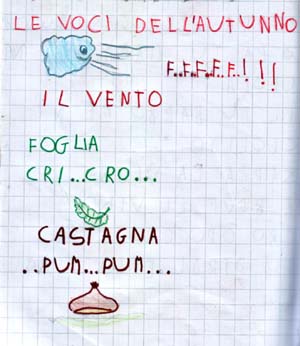 LE VOCI DELL'AUTUNNO
F..F.F.F.F.!!!
IL VENTO
FOGLIA
CRI...CRO...
CASTAGNA
..PUM...PUM...